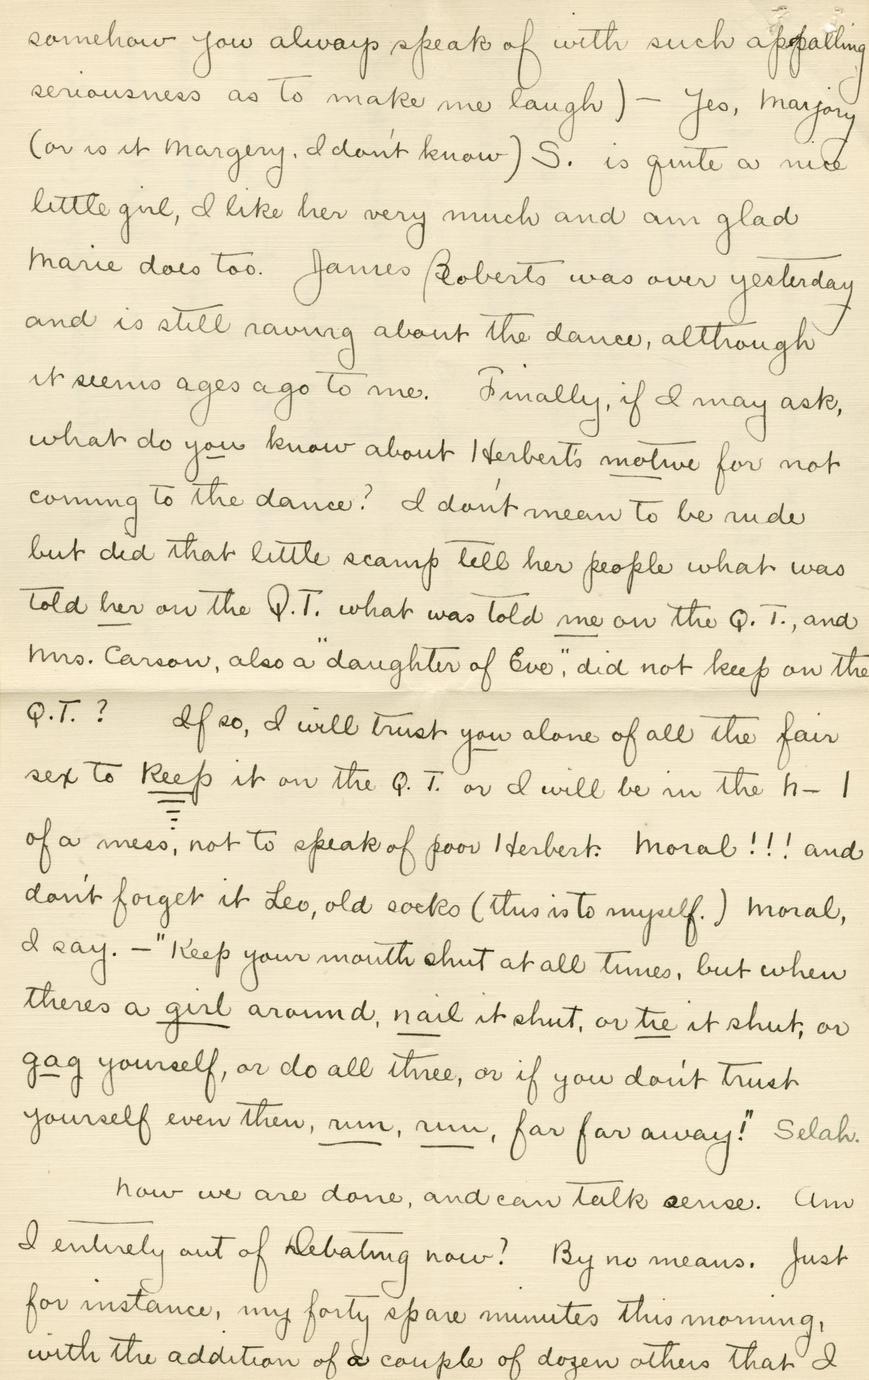 somehow you always speak of with such appalling
seriousness as to make me laugh) — Yes, Marjory
(or is it Margery, I don't know) S. is quite a nice
little girl, I like her very much and am glad
Marie does too. James Roberts was over yesterday
and is still raving about the dance, although
it seems ages ago to me. Finally, if I may ask,
what do you know about Herbert's motive for not
coming to the dance? I don't mean to be rude
but did that little scamp tell her people what was
told her on the Q.T. what was told me on the Q.T., and
Mrs. Carson, also a "daughter of Eve", did not keep on the
Q.T.? If so, I will trust you alone of all the fair
sex to keep it on the Q.T. or I will be in the h–l
of a mess, not to speak of poor Herbert. Moral!!! and
don't forget it Leo, old socks (this is to myself.) Moral,
I say. — "Keep your mouth shut at all times, but when
there's a girl around, nail it shut, or tie it shut, or
gag yourself, or do all three, or if you don't trust
yourself even then, run, run, far far away!" Selah.
Now we are done, and can talk sense. Am
I entirely out of Debating now? By no means. Just
for instance, my forty spare minutes this morning,
with the addition of a couple of dozen others that I